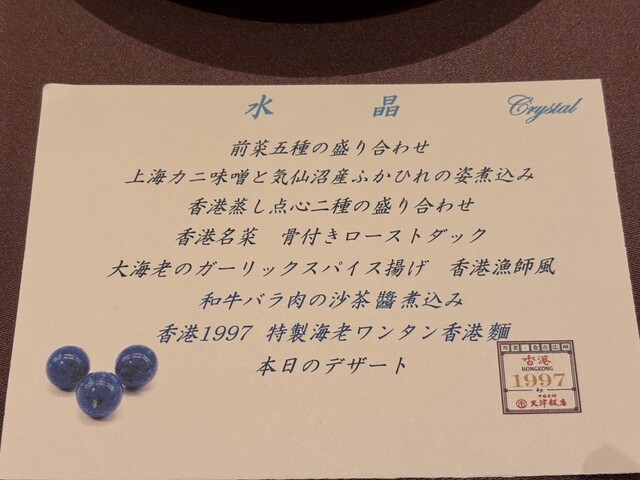 水 晶 Crystal
前菜五種の盛り合わせ
上海カニ味噌と気仙沼産ふかひれの姿煮込み
香港蒸し点心二種の盛り合わせ
香港名菜 骨付きローストダック
大海老のガーリックスパイス揚げ 香港漁師風
和牛バラ肉の沙茶醬煮込み
香港1997 特製海老ワンタン香港麵
本日のデザート
香港
HONGKONG
1997
by
天津飯店